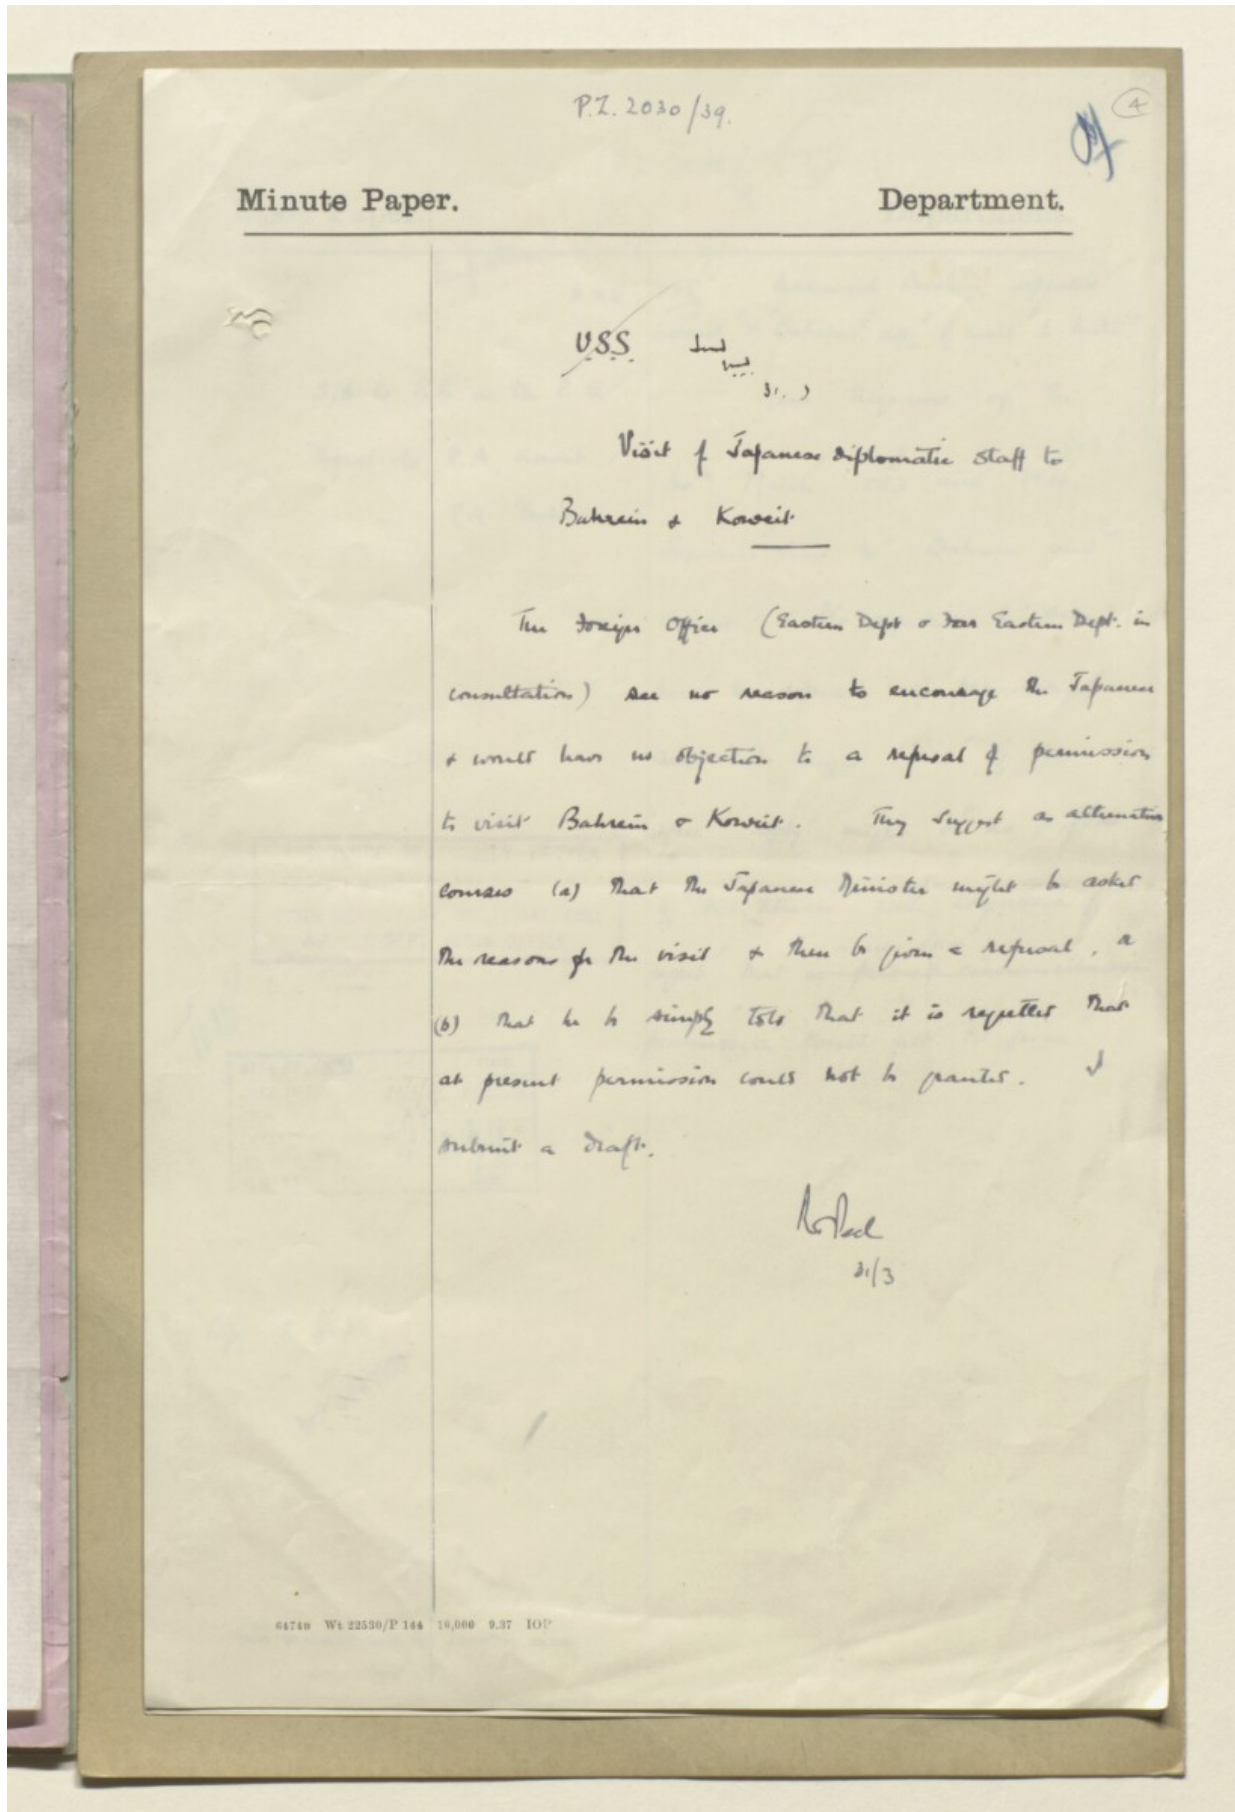 P.Z. 2030/39.
4
Minute Paper.
Department.
U.S.S.
31.3
Visit of Japanese diplomatic staff to
Bahrein & Koweit
The Foreign Office (Eastern Dept & Far Eastern Dept. in
consultation) see no reason to encourage the Japanese
& would have no objection to a refusal of permission
to visit Bahrein & Koweit. They suggest as alternative
courses (a) that the Japanese Minister might be asked
the reasons for the visit & then be given a refusal, or
(b) that he be simply told that it is regretted that
at present permission could not be granted. I
submit a draft.
RTPeel
31/3
64740 Wt 22530/P 144 10,000 9.37 IOP